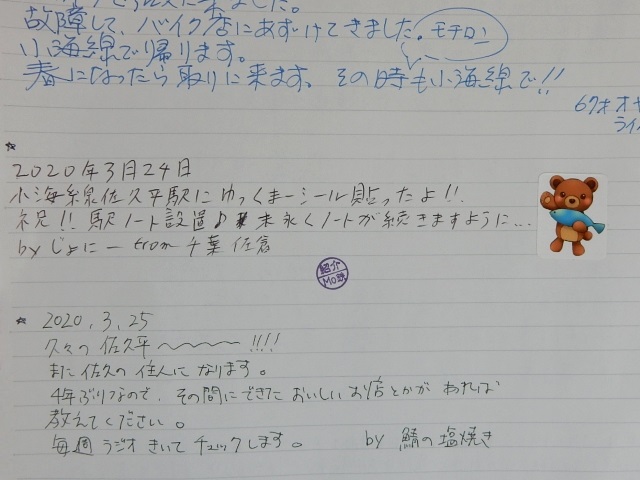 来ました。
故障して、バイク店にあずけてきました。モチロン
小海線で帰ります。
春になったら取りに来ます。その時も小海線で!!
67才オヤ
ライ
2020年3月24日
小海線佐久平駅にゆっくまーシール貼ったよ!!
祝!!駅ノート設置♪末永くノートが続きますように…
by じょにー from 千葉 佐倉
紹介
MO鉄
2020.3.25
久々の佐久平〜〜〜〜!!!!
また佐久の住人になります。
4年ぶりなので、その間にできたおいしいお店とかがあれば
教えてください。
毎週ラジオきいてチェックします。 by 鯖の塩焼き